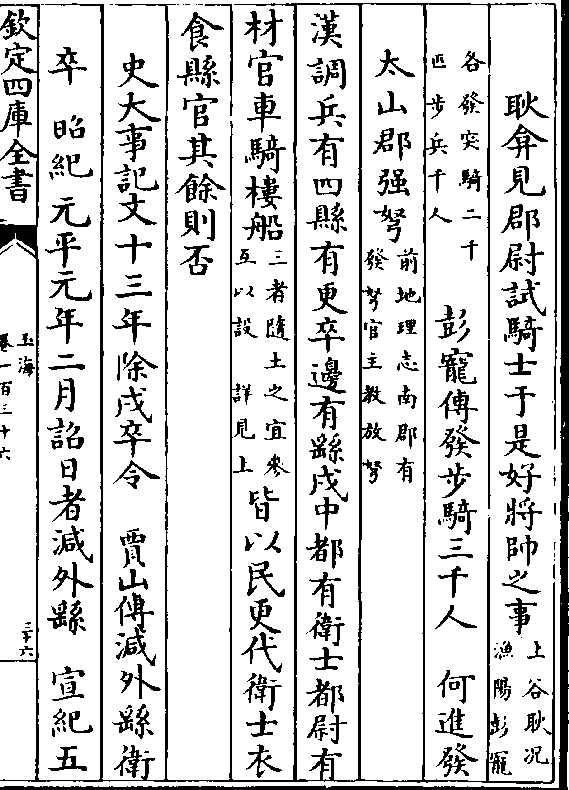 耿弇見郡尉試騎士于是好將帥之事上谷耿况漁陽彭寵
各發突騎二千匹步兵千人 彭寵傳發步騎三千人 何進發
太山郡强弩前地理志南郡有發弩官主教放弩
漢調兵有四縣有更卒邊有繇戍中都有衛士都尉有
材官車騎樓船三者隨土之宜參互以設 詳見上皆以民更代衛士衣
食縣官其餘則否
史大事記文十三年除戍卒令 賈山傳減外繇衛
卒 昭紀元平元年二月詔日者減外繇 宣紀五
欽定四庫全書
玉海
卷一百三十六
三十六